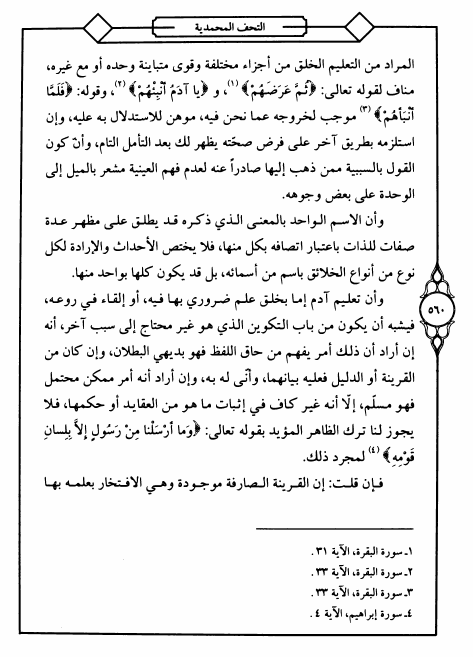 التحف المحمدية
المراد من التعليم الخلق من أجزاء مختلفة وقوى متباينة وحده أو مع غيره،
مناف لقوله تعالى: ﴿ثُمَّ عَرَضَهُمْ﴾ (١)، و ﴿يا آدَمُ أَنْبِئْهُمْ﴾ (٢)، وقوله: ﴿فَلَمَّا
أَنْبَأَهُمْ﴾ (٣) موجب لخروجه عما نحن فيه، موهن للاستدلال به عليه، وإن
استلزمه بطريق آخر على فرض صحّته يظهر لك بعد التأمل التام، وأنّ كون
القول بالسببية ممن ذهب إليها صادراً عنه لعدم فهم العينية مشعر بالميل إلى
الوحدة على بعض وجوهه.
وأن الاسم الواحد بالمعنى الذي ذكره قد يطلق على مظهر عدة
صفات للذات باعتبار اتصافه بكل منها، فلا يختص الأحداث والإرادة لكل
نوع من أنواع الخلائق باسم من أسمائه، بل قد يكون كلها بواحد منها.
وأن تعليم آدم إما بخلق علم ضروري بها فيه، أو إلقاء في روعه،
فيشبه أن يكون من باب التكوين الذي هو غير محتاج إلى سبب آخر، أنه
إن أراد أن ذلك أمر يفهم من حاق اللفظ فهو بديهي البطلان، وإن كان من
القرينة أو الدليل فعليه بيانهما، وأنّى له به، وإن أراد أنه أمر ممكن محتمل
فهو مسلّم، إلّا أنه غير كاف في إثبات ما هو من العقايد أو حكمها، فلا
يجوز لنا ترك الظاهر المؤيد بقوله تعالى: ﴿وَما أَرْسَلْنا مِنْ رَسُولٍ إِلاَّ بِلِسانِ
قَوْمِهِ﴾ (٤) لمجرد ذلك.
فإن قلت: إن القرينة الصارفة موجودة وهي الافتخار بعلمه بها
٥٦٠
١ـ سورة البقرة، الآية ٣١ .
٢ـ سورة البقرة، الآية ٣٣ .
٣ـ سورة البقرة، الآية ٣٣ .
٤ـ سورة إبراهيم، الآية ٤ .